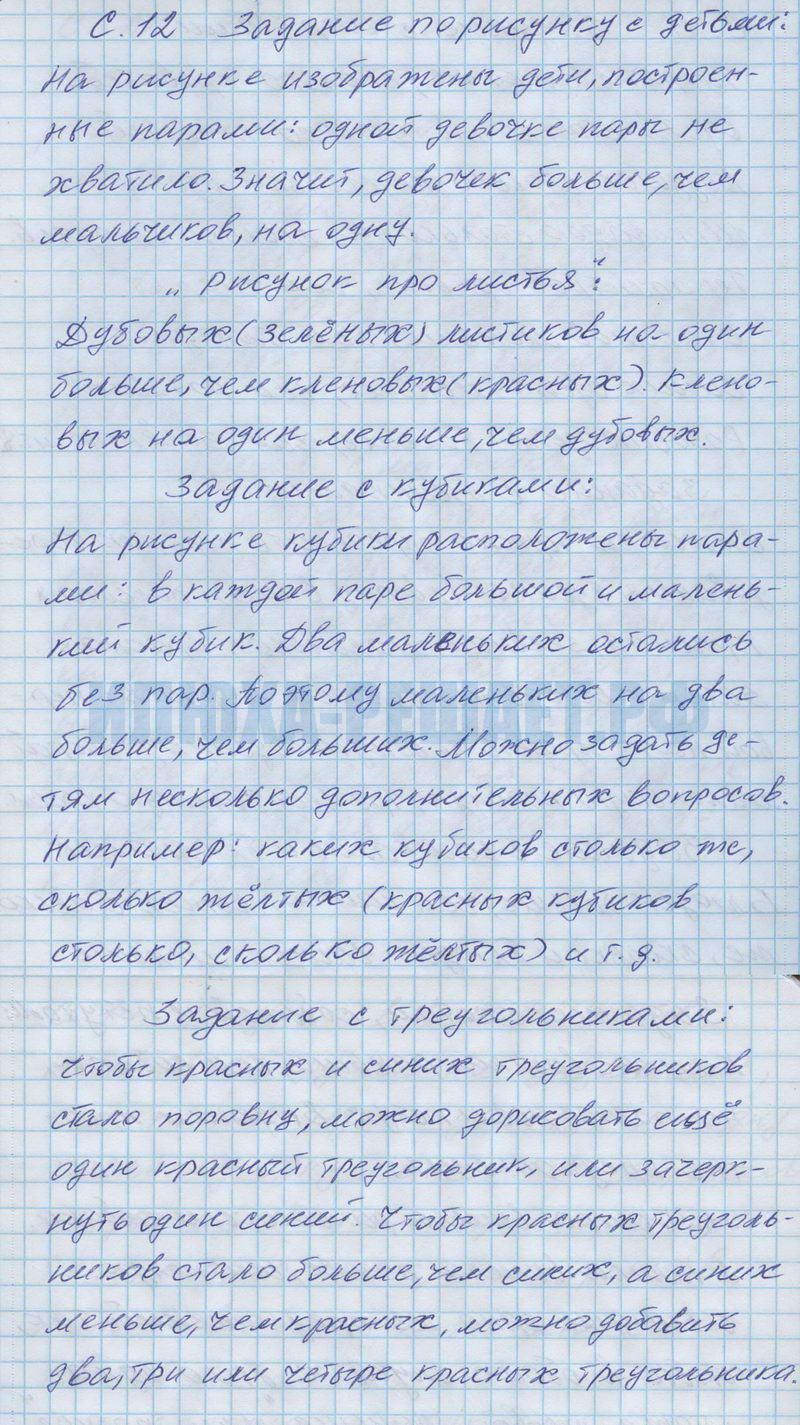 С. 12 Задание по рисунку с детьми:
На рисунке изображены дети, построен-
ные парами: одной девочке пары не
хватило. Значит, девочек больше, чем
мальчиков, на одну.
„Рисунок про листья":
Дубовых (зелёных) листиков на один
больше, чем кленовых (красных). Клено-
вых на один меньше, чем дубовых.
Задание с кубиками:
На рисунке кубики расположены пара-
ми: в каждой паре большой и малень-
кий кубик. Два маленьких остались
без пар. Поэтому маленьких на два
больше, чем больших. Можно задать де-
тям несколько дополнительных вопросов.
Например: каких кубиков столько же,
сколько жёлтых (красных кубиков
столько, сколько жёлтых) и т. д.
Задание с треугольниками:
Чтобы красных и синих треугольников
стало поровну, можно дорисовать ещё
один красный треугольник, или зачерк-
нуть один синий. Чтобы красных треуголь-
ников стало больше, чем синих, а синих
меньше, чем красных, можно добавить
два, три или четыре красных треугольника.